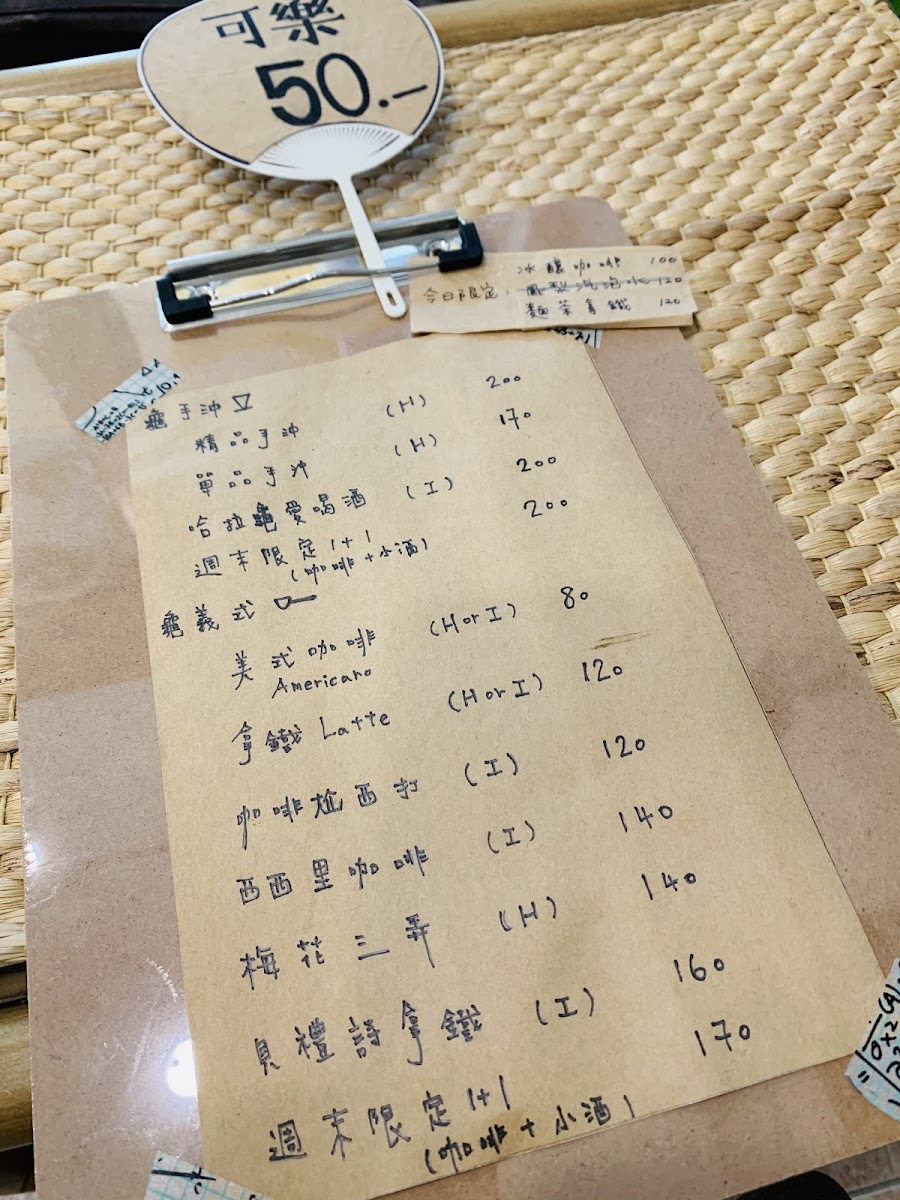 可樂
50.-
冰釀咖啡 100
今日限定: 鳳梨汽泡水 120
麵茶拿鐵 120
龜手沖
精品手沖 (H) 200
單品手沖 (H) 170
哈拉龜愛喝酒 (I) 200
週末限定 1+1 200
(咖啡+小酒)
龜義式
美式咖啡 (H or I) 80
Americano
拿鐵 Latte (H or I) 120
咖啡尬西打 (I) 120
西西里咖啡 (I) 140
梅花三弄 (H) 140
貝禮詩拿鐵 (I) 160
週末限定 1+1 170
(咖啡+小酒)